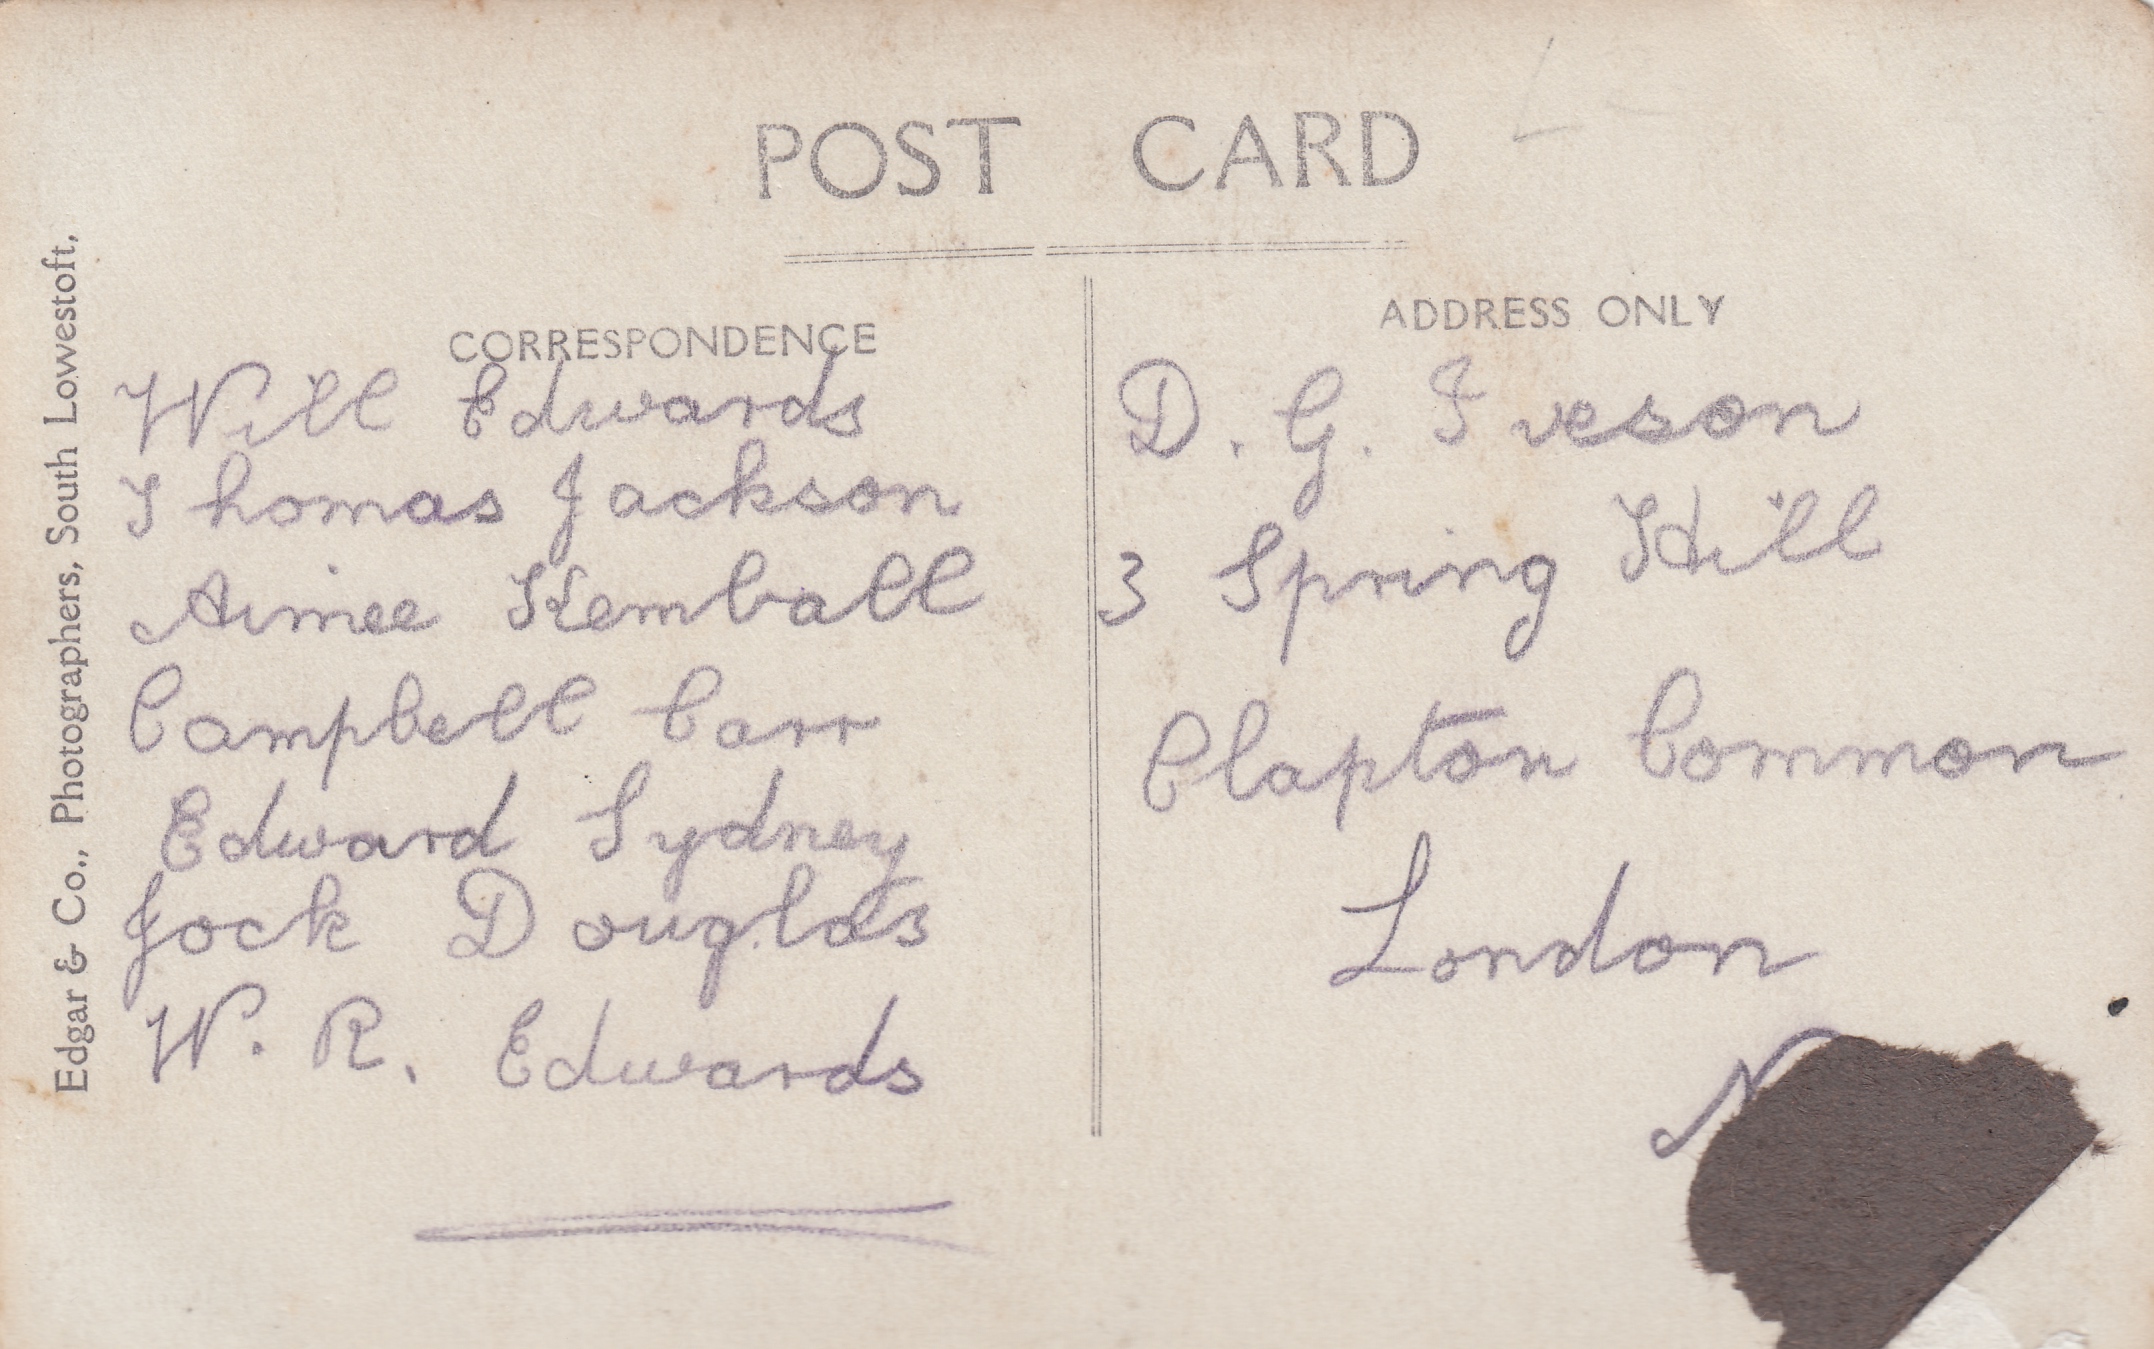 POST CARD
Edgar & Co., Photographers, South Lowestoft,
CORRESPONDENCE
Will Edwards
Thomas Jackson
Aimee Kemball
Campbell Carr
Edward Sydney
Jock Douglas
W. R. Edwards
ADDRESS ONLY
D. G. Iveson
3 Spring Hill
Clapton Common
London
N